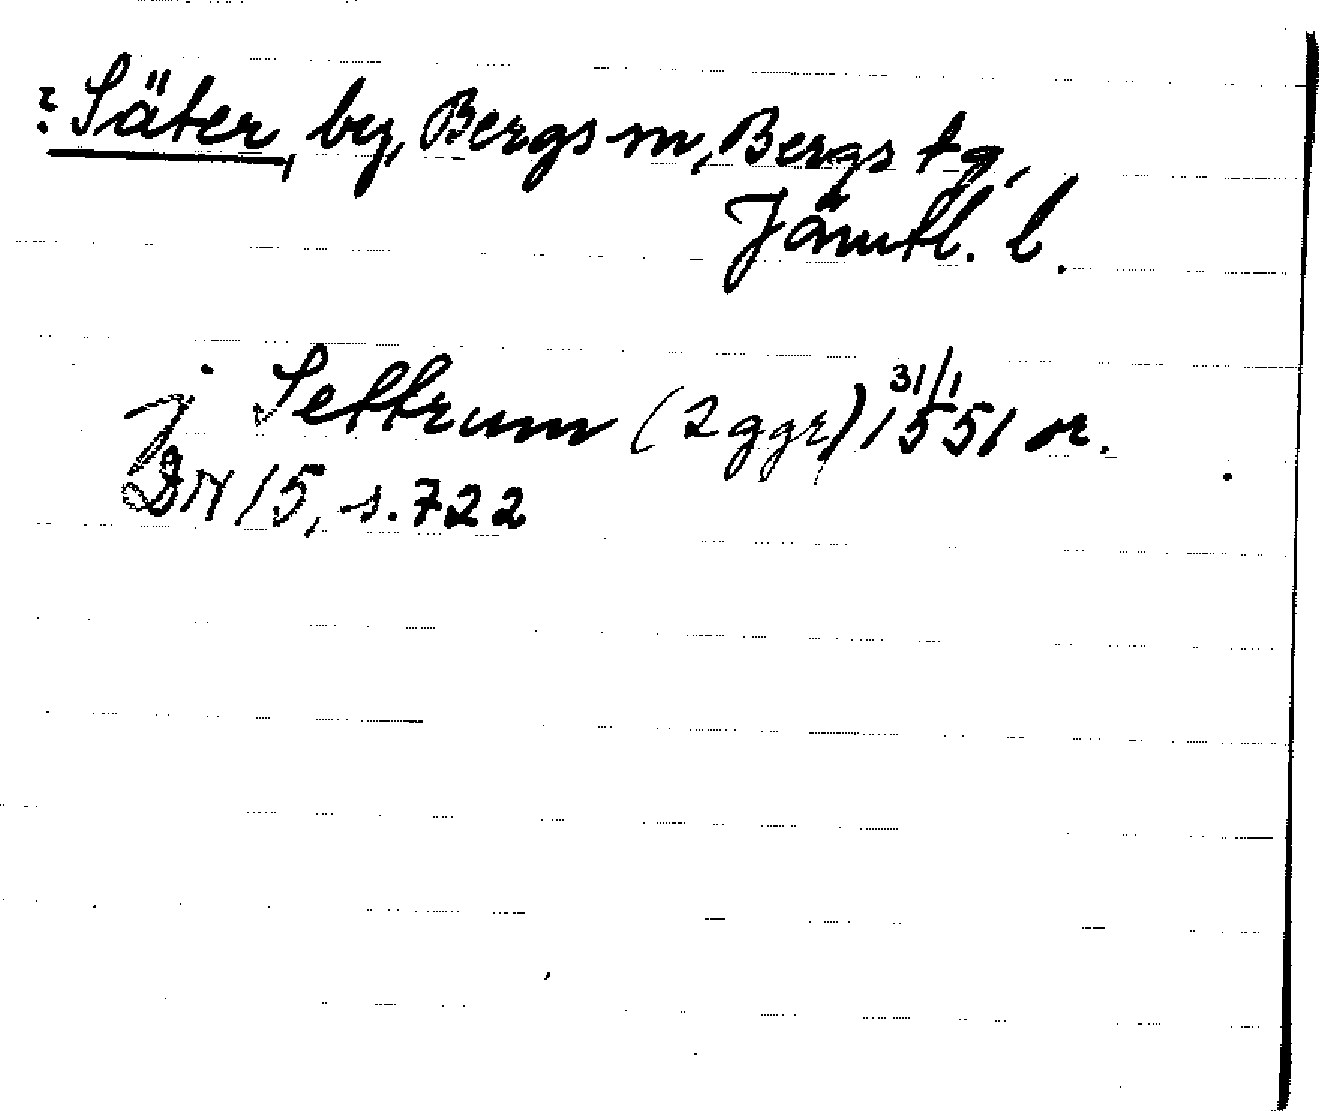 ? Säter, by, Bergs sn, Bergs tg,
Jämtl. l.
j Settrum (2 ggr) 31/1 1551 or.
DN 15, s. 722